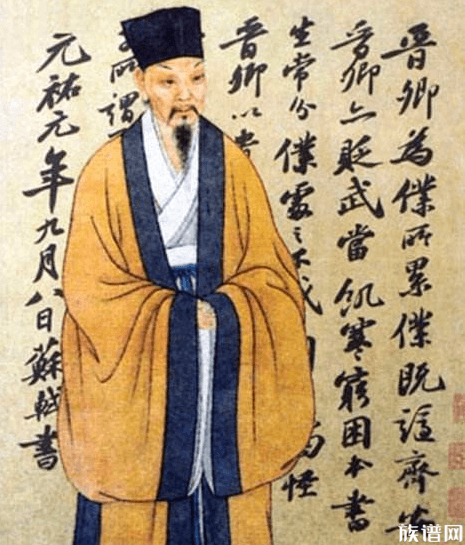 晉卿為僕所累僕既謫齊
晉卿亦貶武當飢寒窮困本書
生常分僕處之不 怪
晉卿以
所謂
元祐元年九月八日蘇軾書
族谱网